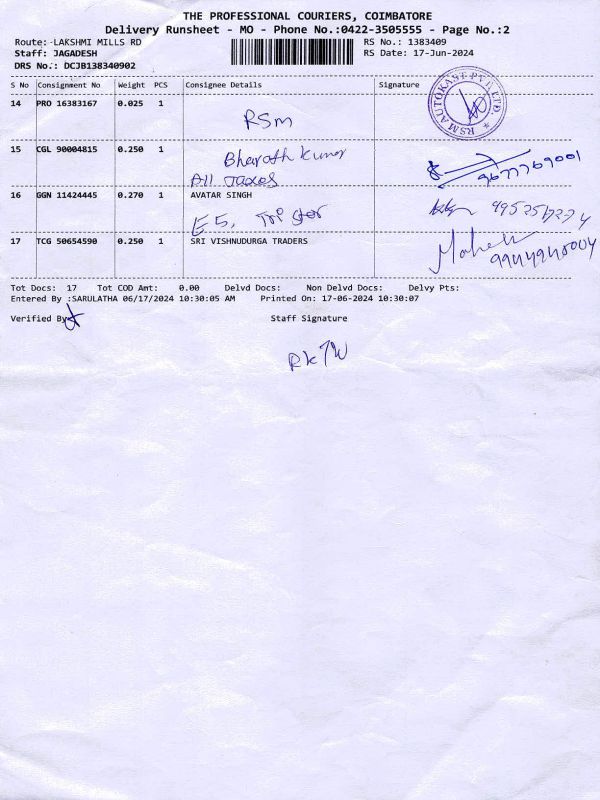 THE PROFESSIONAL COURIERS, COIMBATORE
Delivery Runsheet - MO - Phone No.:0422-3505555 - Page No.:2
Route: LAKSHMI MILLS RD RS No.: 1383409
Staff: JAGADESH RS Date: 17-Jun-2024
DRS No.: DCJB138340902
S No Consignment No Weight PCS Consignee Details Signature
14 PRO 16383167 0.025 1
RSM
RSM AUTOKAST PVT. LTD.
15 CGL 90004815 0.250 1
Bharath kumar
All Taxes
9677769001
16 GGN 11424445 0.270 1 AVATAR SINGH
E5, Tri star
17 TCG 50654590 0.250 1 SRI VISHNUDURGA TRADERS
9944940004
Tot Docs: 17 Tot COD Amt: 0.00 Delvd Docs: Non Delvd Docs: Delvy Pts:
Entered By :SARULATHA 06/17/2024 10:30:05 AM Printed On: 17-06-2024 10:30:07
Verified By Staff Signature